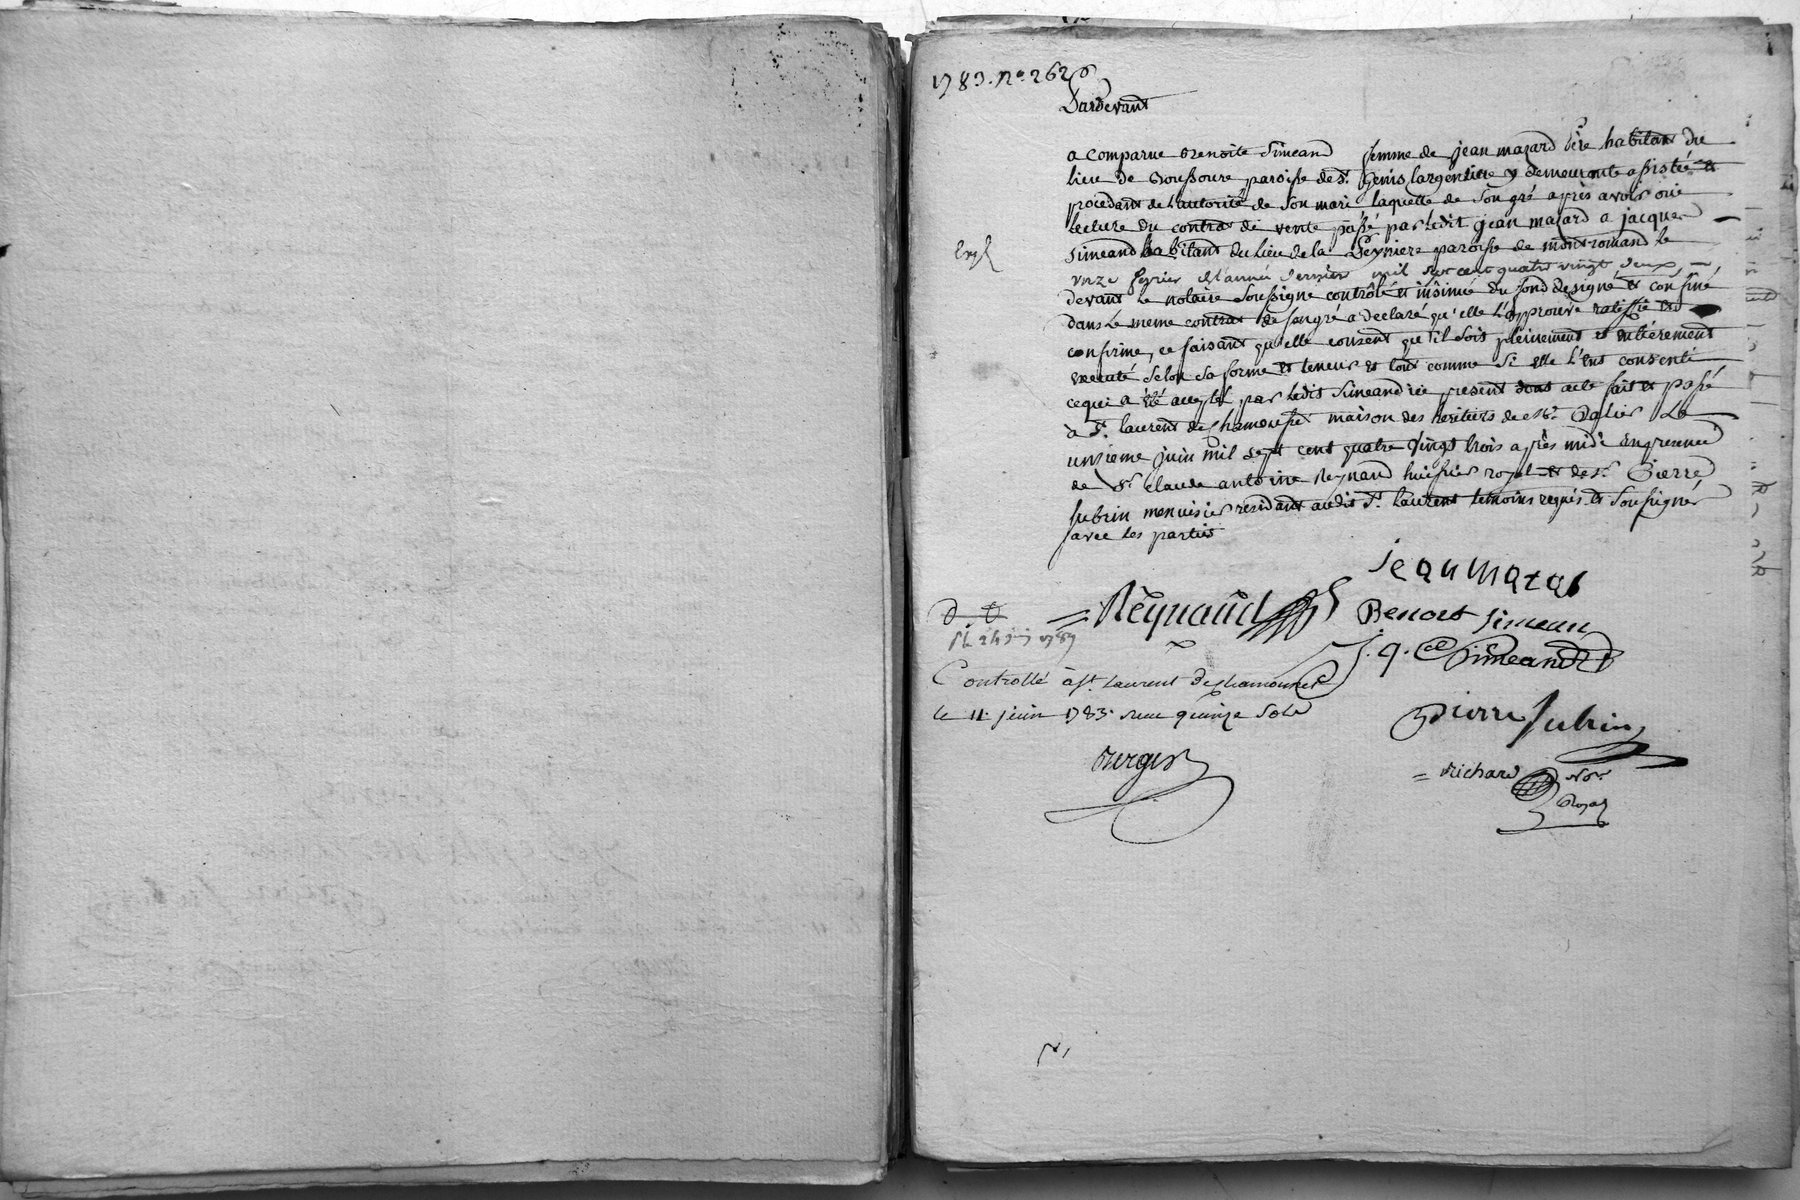 1783. No. 262
Pardevant
a comparue Benoite Simeand femme de jean mazard père habitant du
lieu de paroisse de st. Genis largentiere y demeurante assistée et
procedant de l'autorité de son mari laquelle de son gré après avoir ouie
lecture du contrat de vente passé par ledit jean mazard a jacques
simeand habitant du lieu de la Peyniere paroisse de montromand le
onze fevrier de l'année derniere mil sept cent quatre vingt deux
devant le notaire soussigné contrôlé et insinué du fond designé et confiné
dans le meme contrat de son gré a declaré qu'elle l'approuve ratiffie et
confirme, ce faisant qu'elle consent qu'il soit pleinement et entièrement
executé selon sa forme et teneur et tout comme si elle l'eut consenti
ce qui a été accepté par ledit Simeand icy present dont acte fait et passé
à st. laurent de chamousset maison des heritiers de Mr. le
unzieme juin mil sept cent quatre vingt trois après midi en presence
de sr. Claude antoine Reynaud huissier royal et de sr. Pierre
Subrin menuisier residant audit st. laurent temoins requis et soussignés
avec les parties
jean mazar
Reynaud
Benoite simean
j. q. Simeand
Controllé à st. laurent de chamousset
le 11. juin 1783. reçu quinze sols
pierre subrin
Berger
Richard nore.
Royal